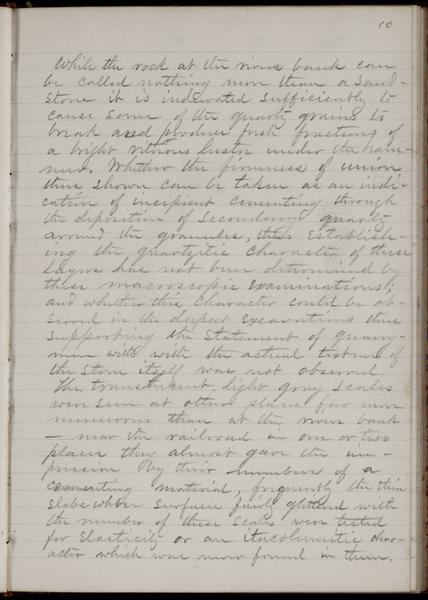 10
While the rock at the rivers bank can
be called nothing more than a sand-
stone it is indurated sufficiently to
cause some of the quartz grains to
break and produce fresh fractions of
a bright vitrious luster under the ham-
mer. Whether the firmness of union
thus shown can be taken as an indi-
cation of incipient cementing through
the deposition of secondary quartz
around the granules, thus establish-
ing the quartzitic character of these
layers has not been determined by
these macroscopic examinations;
and whether this character could be ob-
served in the deepest excavations thus
supporting the statement of quarry-
men with the actual texture of
the stone itself was not observed.
The translucent, light gray scales
were seen at other places far more
numerous than at the rivers bank
— near the railroad in one or two
places they almost gave the im-
pression by their numbers of a
cementing material, frequently the thin
slabs whose surfaces fairly glittered with
the number of these scales were tested
for elasticity or an itacolumitic char-
acter which was never found in them.